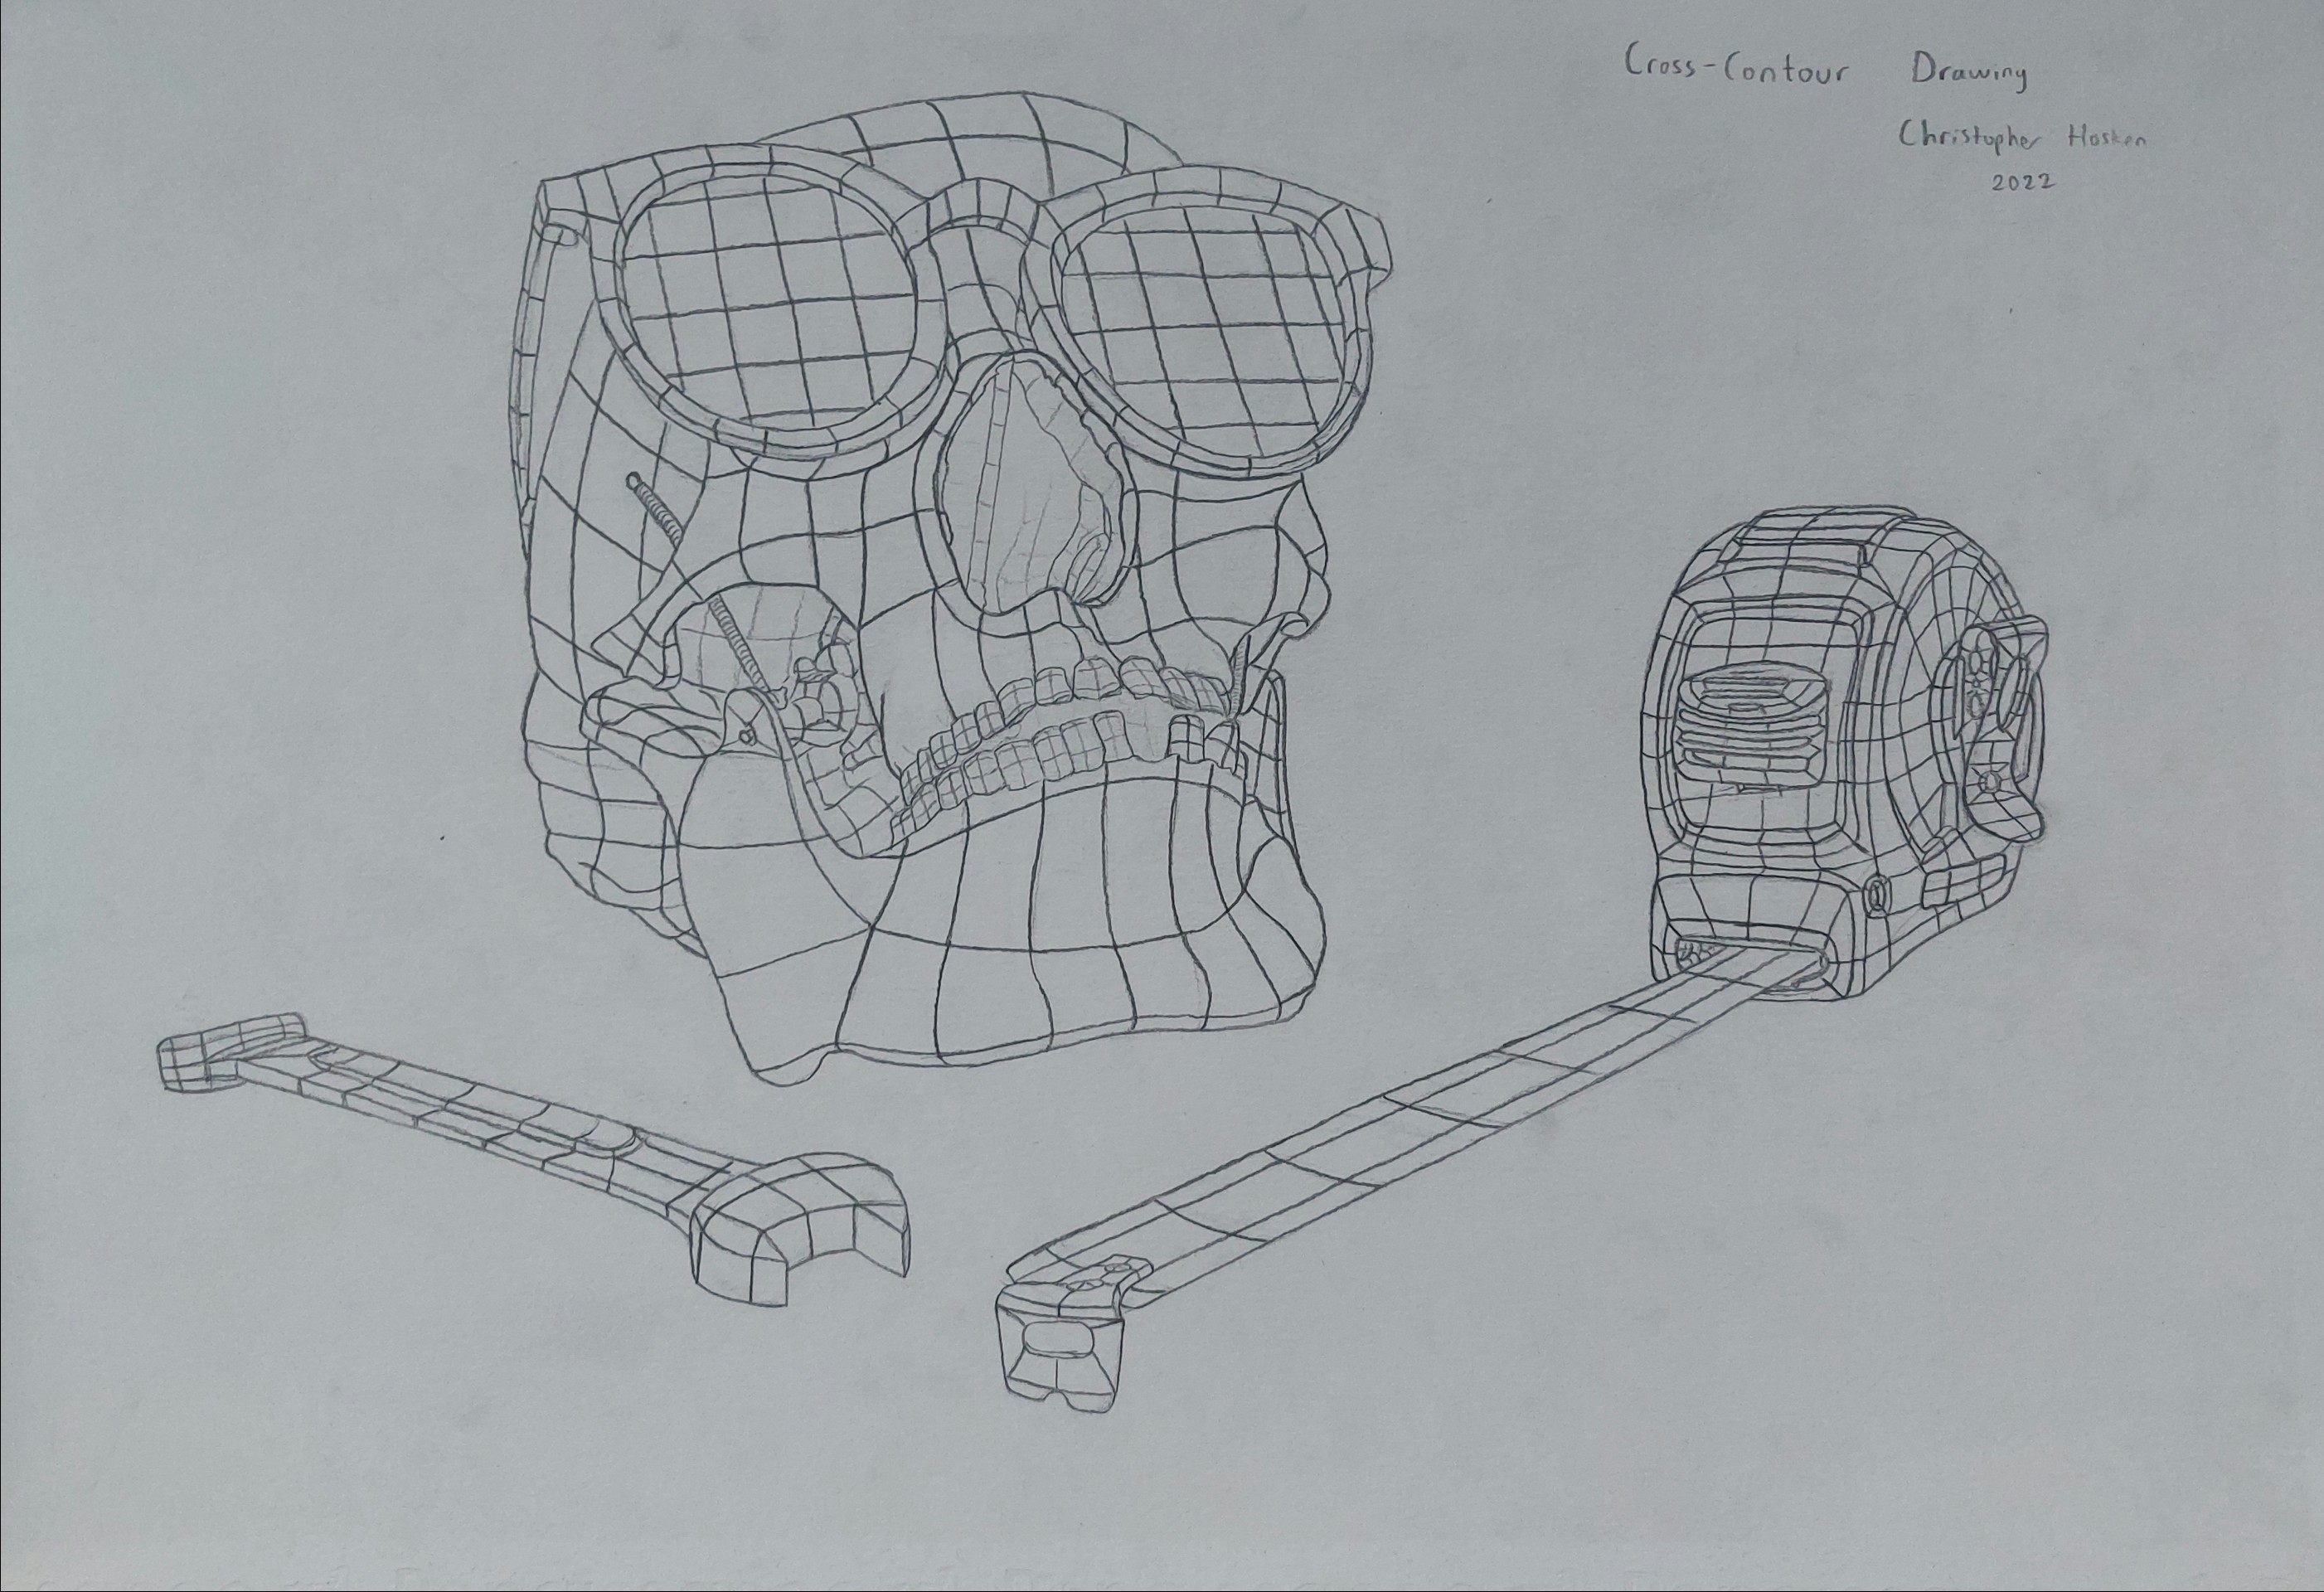 Cross-Contour Drawing
Christopher Hosken
2022